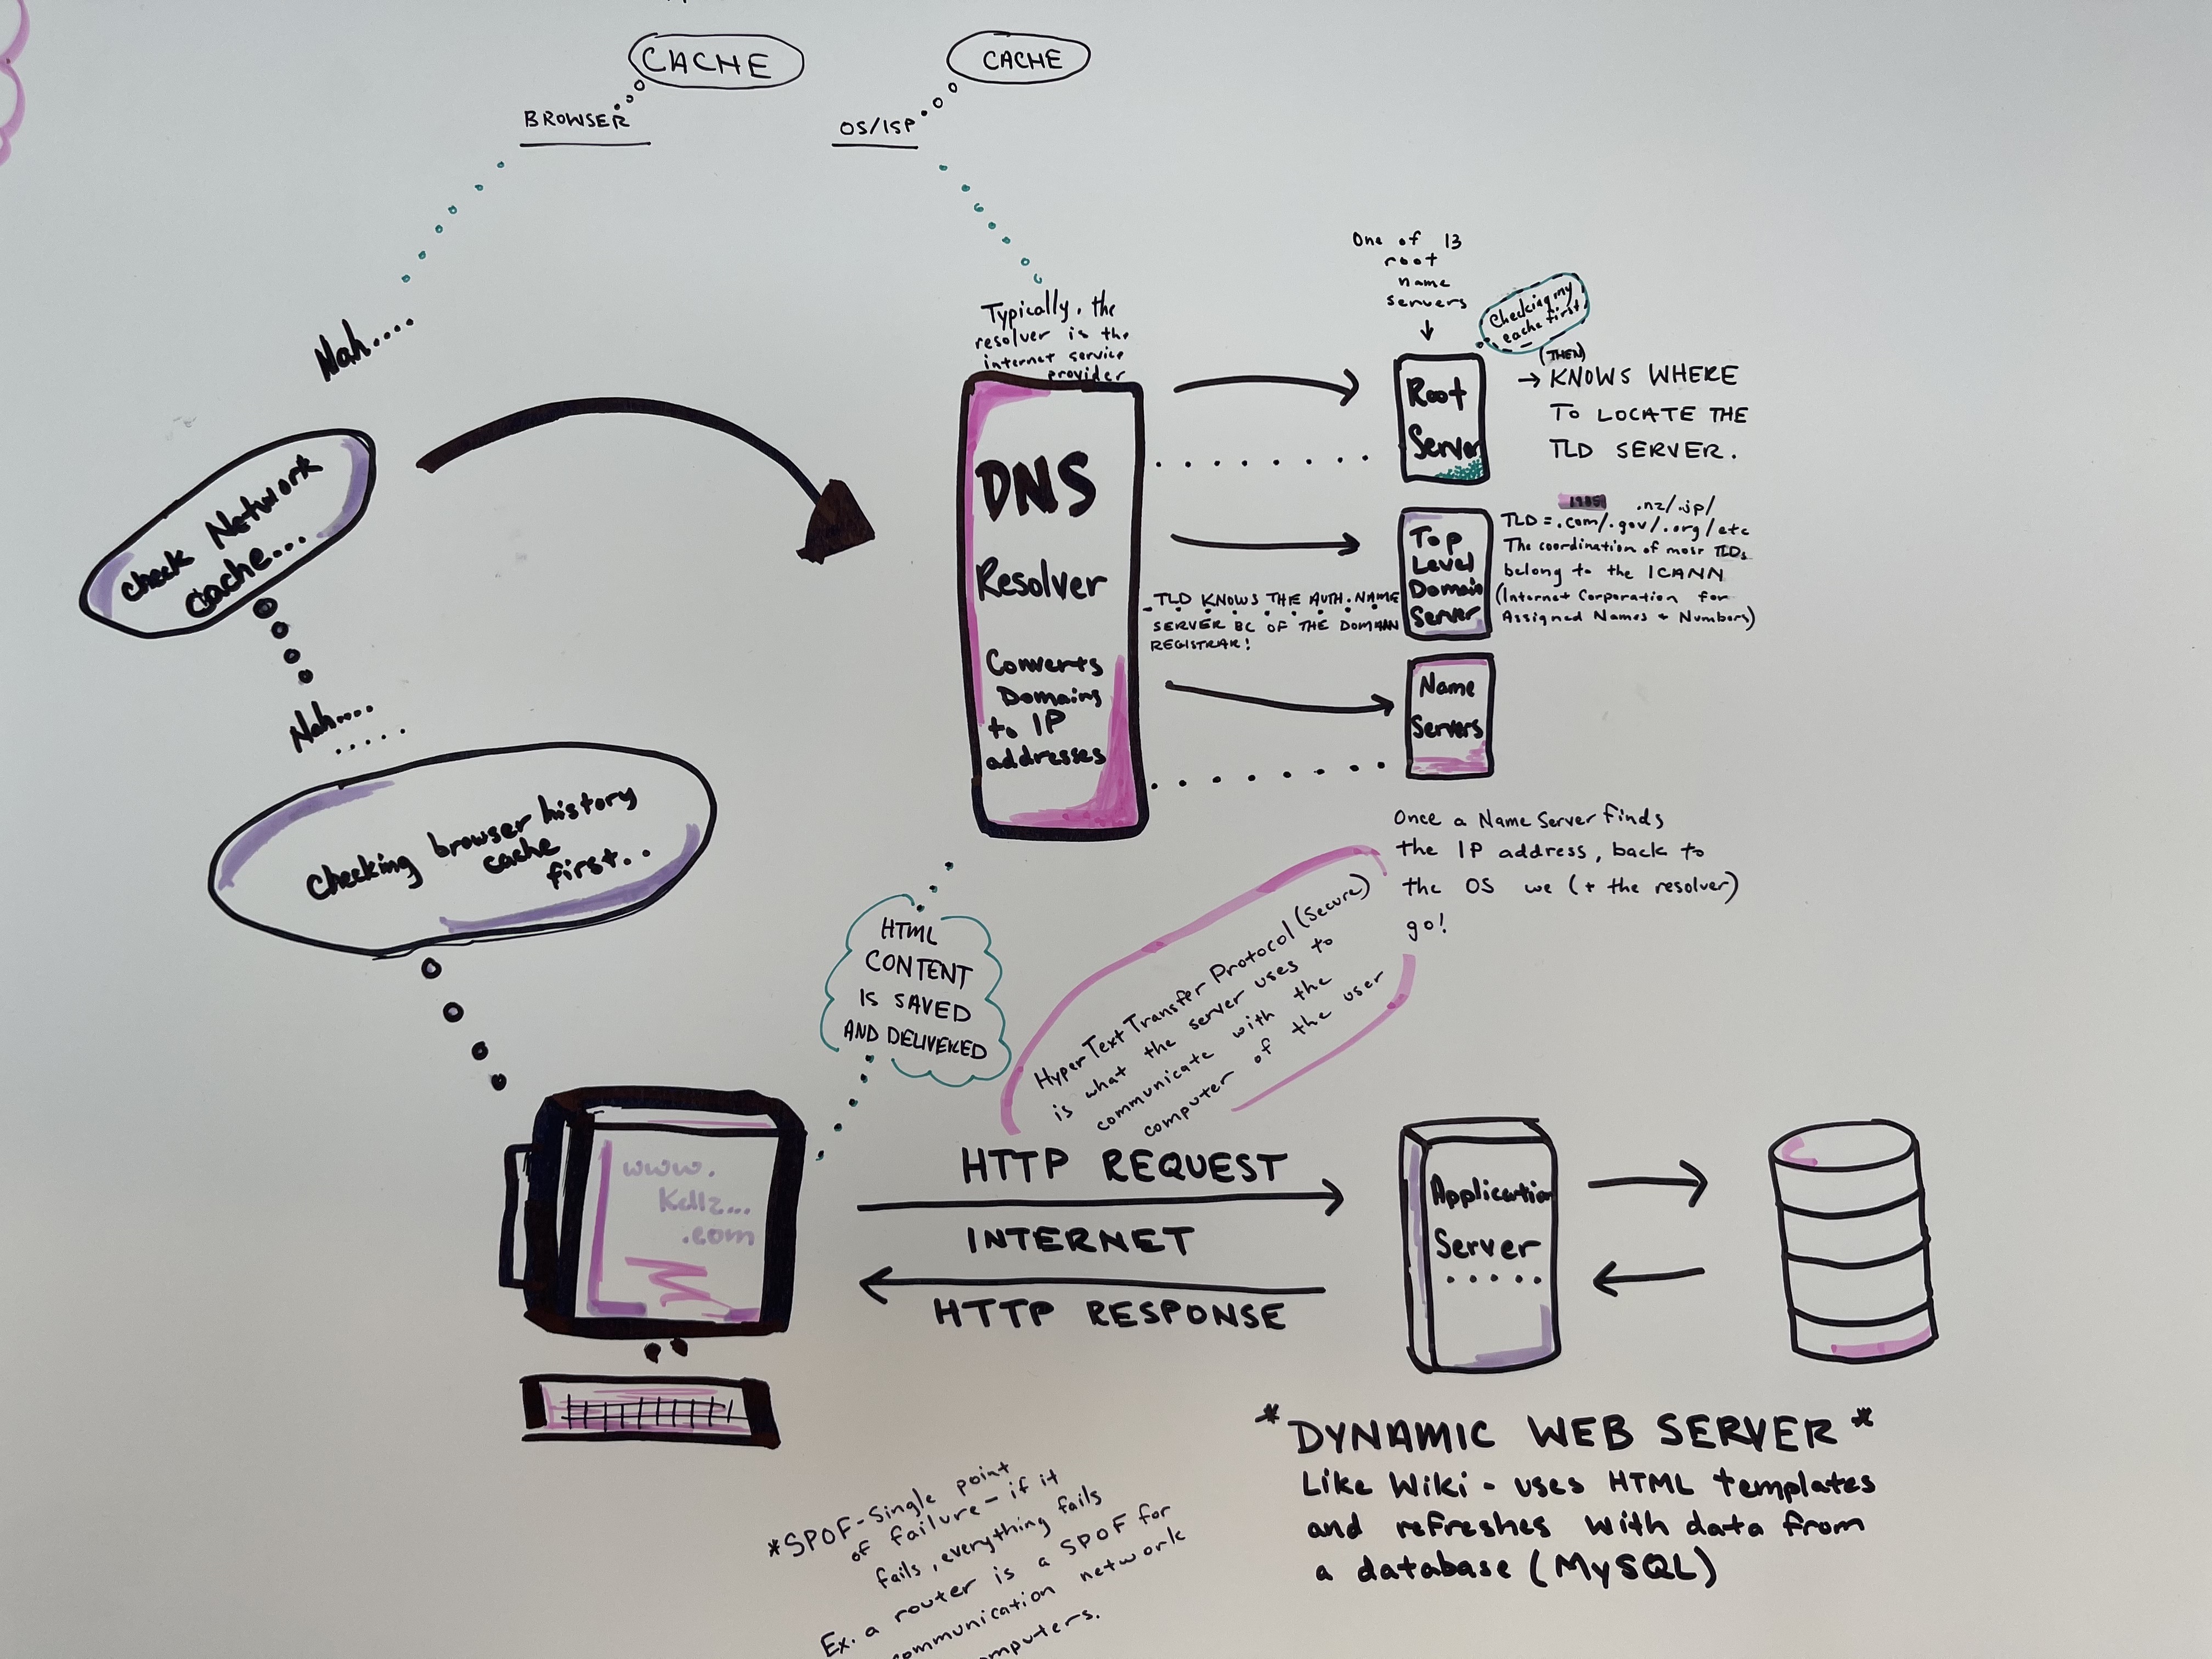 CACHE
BROWSER
CACHE
OS/ISP
Nah....
Check Network
cache...
Nah....
Checking browser history
cache
first..
Typically, the
resolver is the
internet service
provider
DNS
Resolver
Converts
Domains
to IP
addresses
One of 13
root
name
servers
Checking my
cache first
Root
Server
(THEN)
→ KNOWS WHERE
TO LOCATE THE
TLD SERVER.
Top
Level
Domain
Server
1985
.nz/.jp/
TLD = .com/.gov/.org/etc
The coordination of most TLDs
belong to the ICANN
(Internet Corporation for
Assigned Names + Numbers)
TLD KNOWS THE AUTH. NAME
SERVER BC OF THE DOMAIN
REGISTRAR!
Name
Servers
Once a Name Server finds
the IP address, back to
the OS we (+ the resolver)
go!
HTML
CONTENT
IS SAVED
AND DELIVERED
HyperText Transfer Protocol (Secure)
is what the server uses to
communicate with the
computer of the user
www.
.com
HTTP REQUEST
INTERNET
HTTP RESPONSE
Application
Server
.....
*DYNAMIC WEB SERVER*
Like Wiki - uses HTML templates
and refreshes with data from
a database (MySQL)
*SPOF - Single point
of failure - if it
fails, everything fails
Ex. a router is a SPOF for
communication network